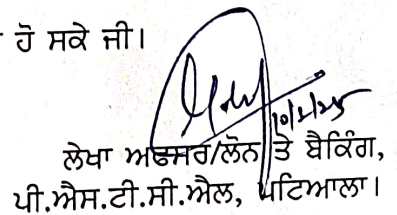 ਹੋ ਸਕੇ ਜੀ।
10/2/25
ਲੇਖਾ ਅਫਸਰ/ਲੋਨ ਤੇ ਬੈਕਿੰਗ,
ਪੀ.ਐਸ.ਟੀ.ਸੀ.ਐਲ, ਪਟਿਆਲਾ।